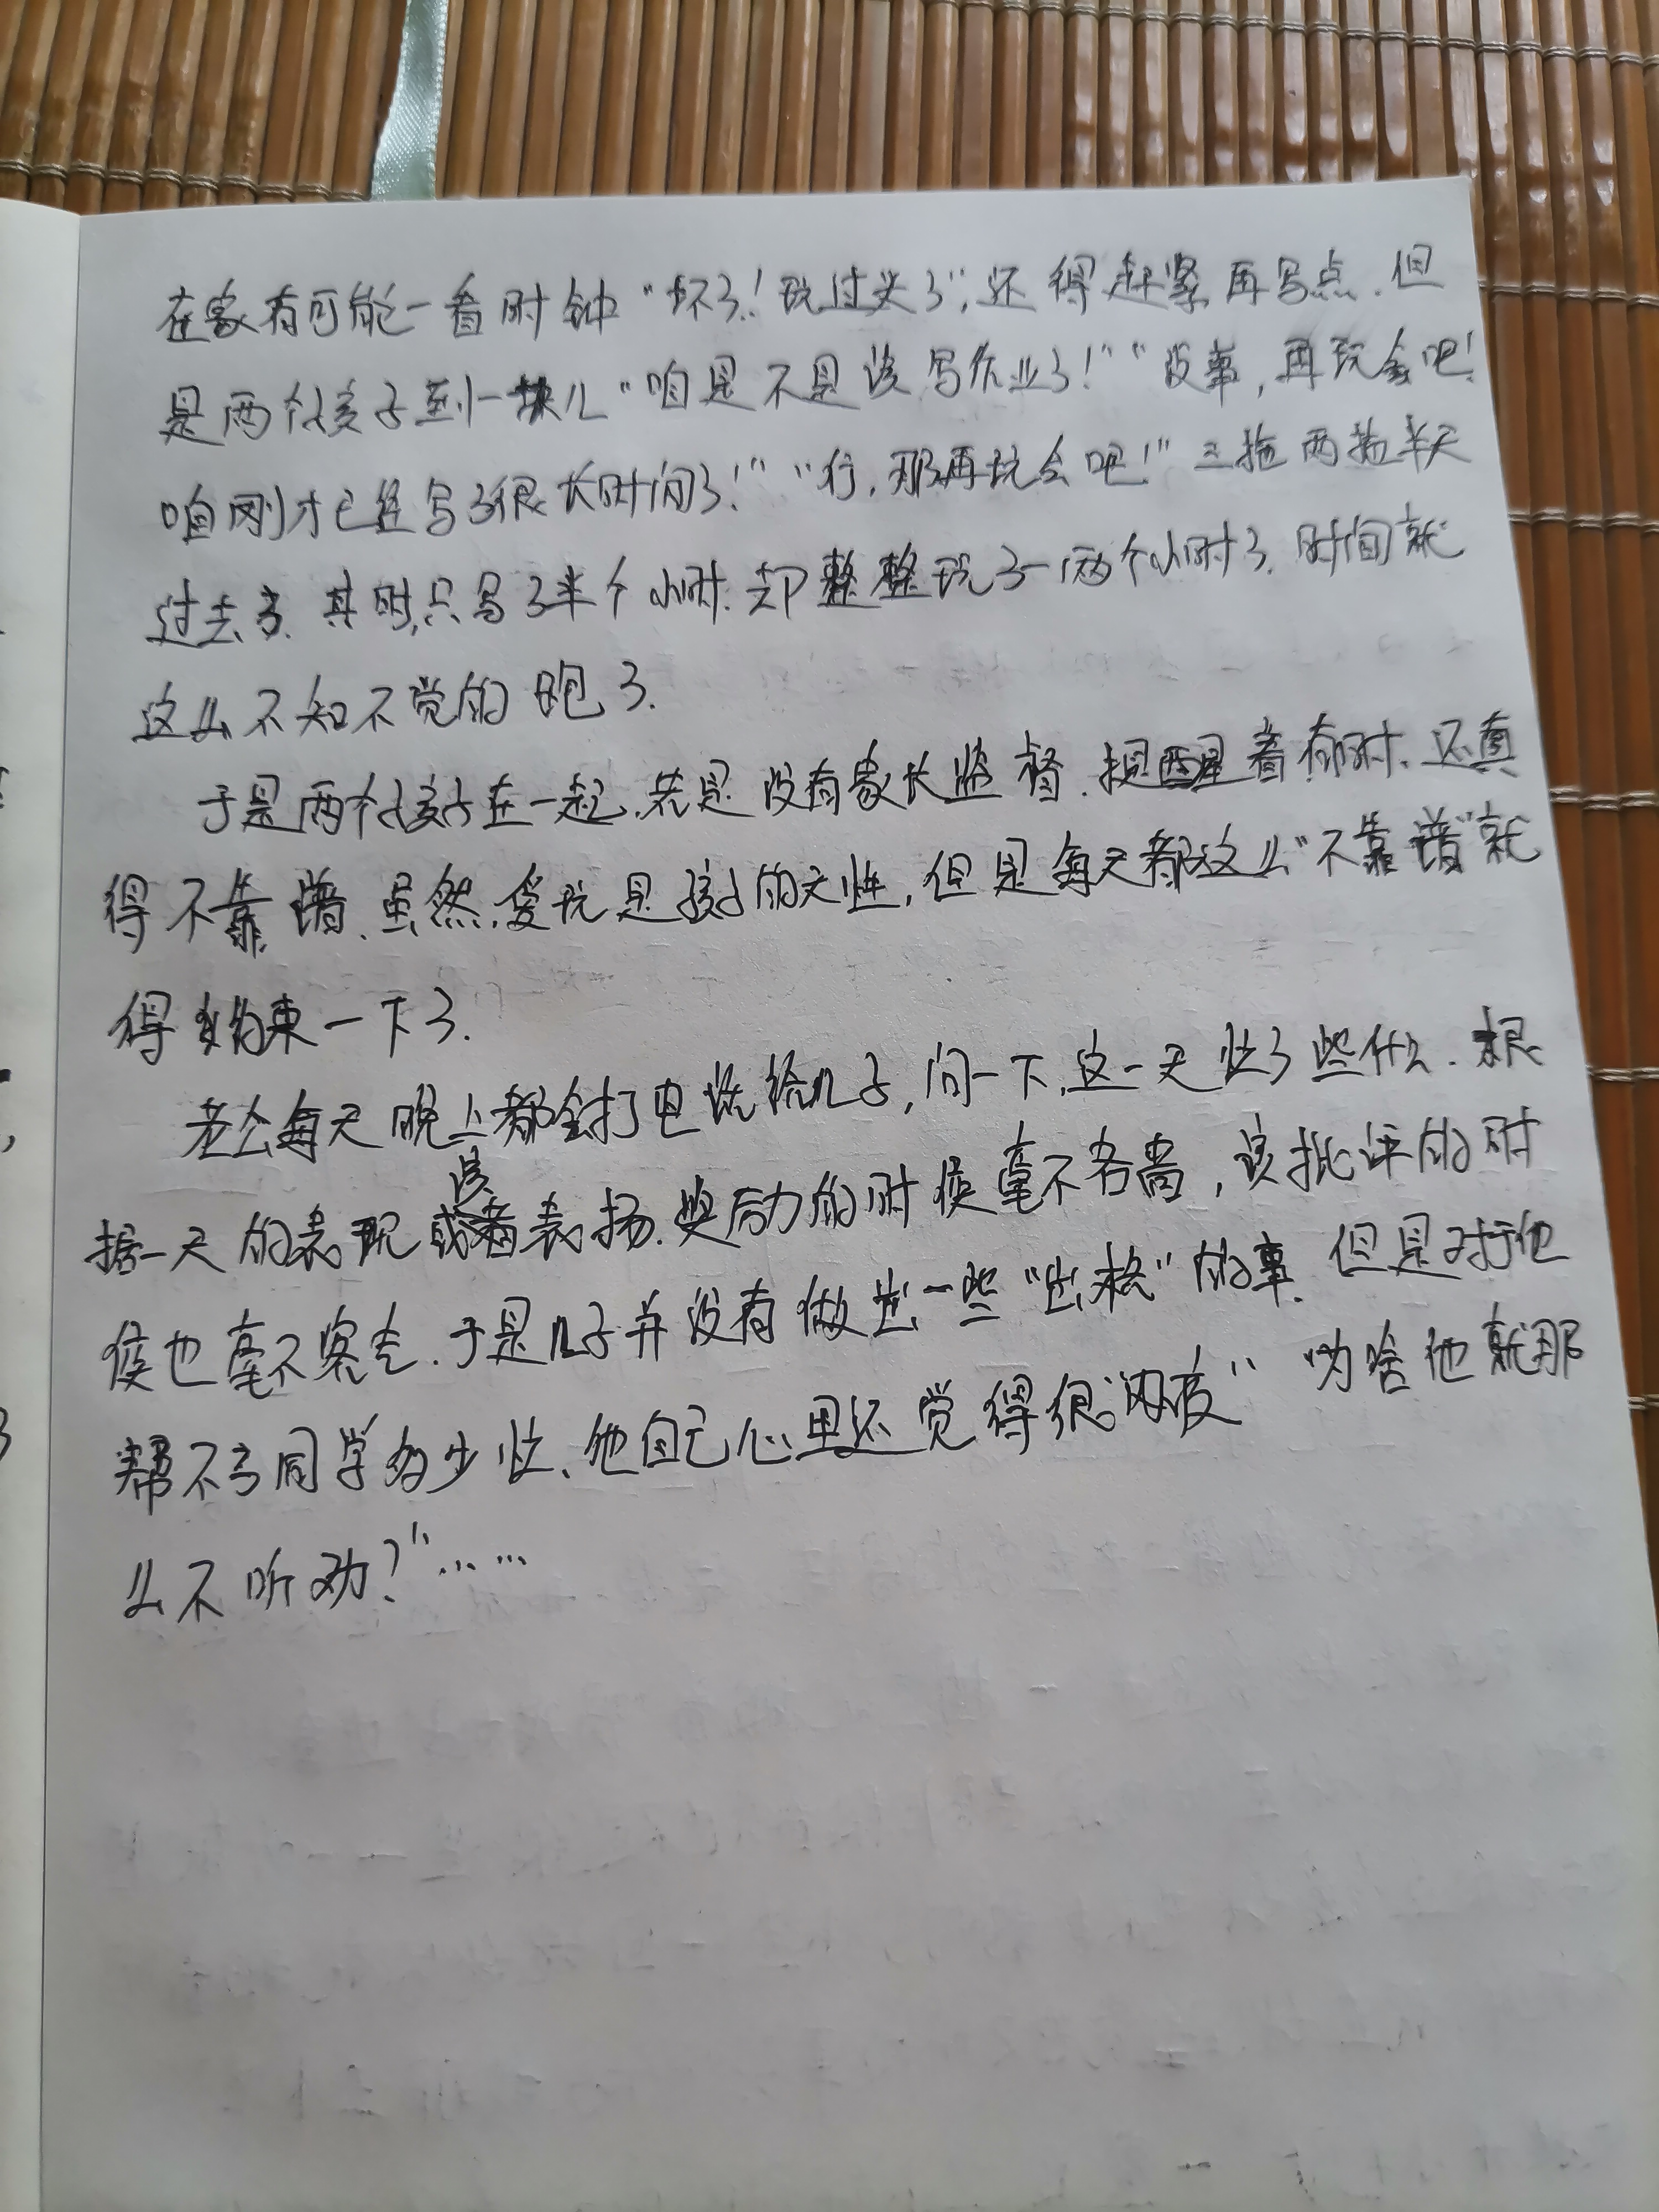 在家有可能一看时钟“坏了!玩过头了”,还得赶紧再写点.但
是两个孩子到一块儿“咱是不是该写作业了!”“没事,再玩会吧!
咱刚才已经写了很长时间了!”“行,那再玩会吧!”三拖两拖半天
过去了.其时,只写了半个小时.却整整玩了一两个小时了.时间就
这么不知不觉的跑了.
于是两个孩子在一起,若是没有家长监督.提醒着有时.还真
得不靠谱.虽然,爱玩是孩子的天性,但是每天都这么“不靠谱”就
得约束一下了.
老公每天晚上都会打电话给儿子,问一下,这一天忙了些什么.根
据一天的表现该表扬.奖励的时候毫不吝啬,该批评的时
候也毫不客气.于是儿子并没有做出一些“出格”的事.但是对于他
帮不了同学多少忙、他自己心里还觉得很“内疚”“为啥他就那
么不听劝?”……